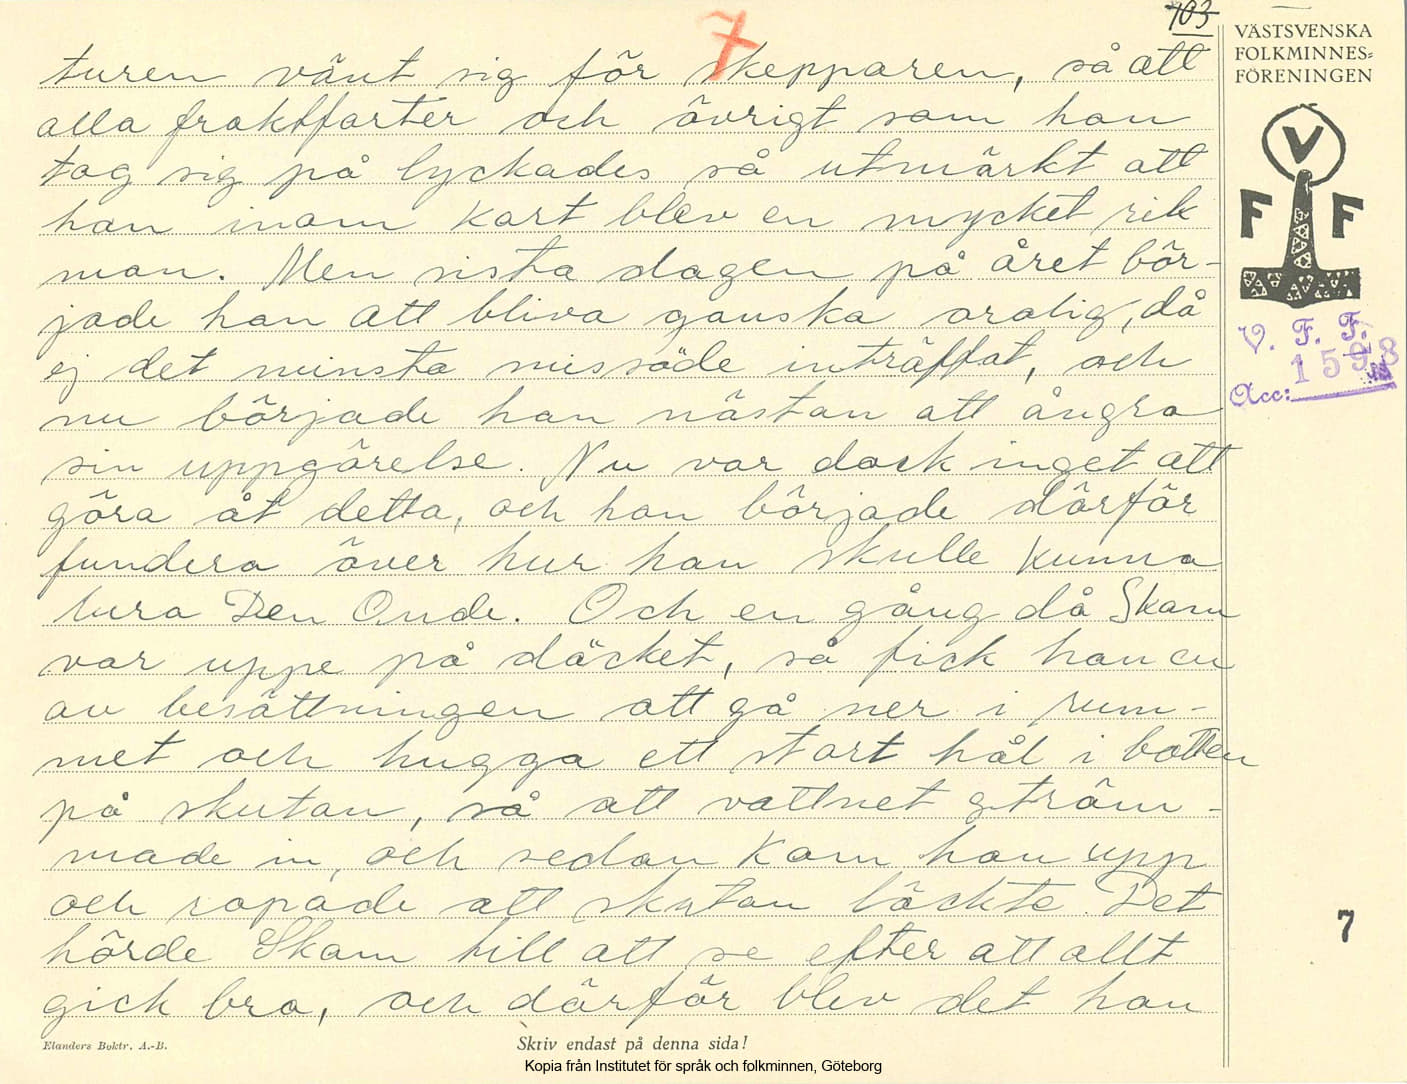 703
7
VÄSTSVENSKA
FOLKMINNES=
FÖRENINGEN
V
F F
V. F. F.
1598
Acc:
turen vänt sig för skepparen, så att
alla fraktfarter och övrigt som han
tog sig på lyckades så utmärkt att
han inom kort blev en mycket rik
man. Men sista dagen på året bör-
jade han att bliva ganska orolig, då
ej det minsta missöde inträffat, och
nu började han nästan att ångra
sin uppgörelse. Nu var dock inget att
göra åt detta, och han började därför
fundera över hur han skulle kunna
lura Den Onde. Och en gång då Skam
var uppe på däcket, så fick han en
av besättningen att gå ner i rum-
met och hugga ett stort hål i botten
på skutan, så att vattnet ström-
made in, och sedan kom han upp
och ropade att skutan läckte. Det
hörde Skam till att se efter att allt
gick bra, och därför blev det han
7
Elanders Boktr. A.-B.
Skriv endast på denna sida!
Kopia från Institutet för språk och folkminnen, Göteborg